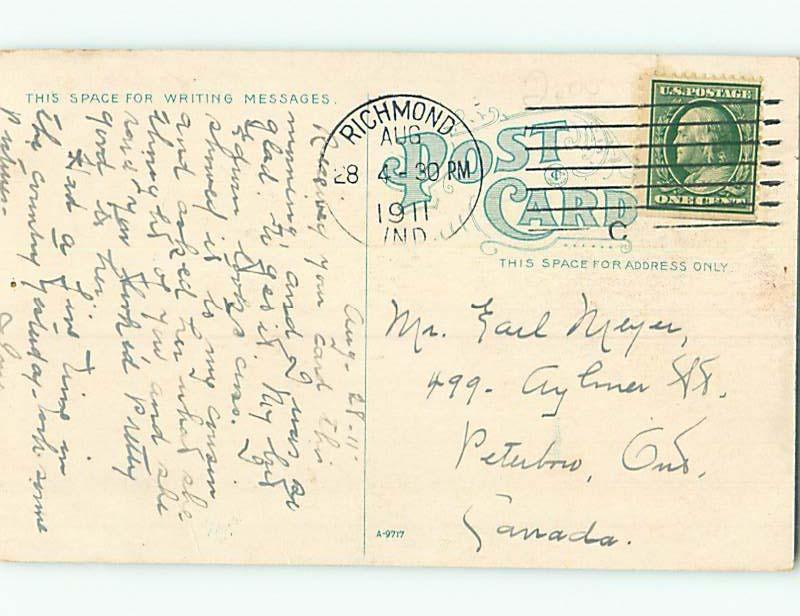 THIS SPACE FOR WRITING MESSAGES.
Aug- 28-11-
Received your card this
morning and I was so
glad to get it. My but
Zurn looks cuss.
I showed it to my cousin
and asked her what she
thought of you and she
said you looked pretty
good to her.
Had a fine time in
the country yesterday- with some
RICHMOND
AUG
28 4-30 PM
1911
IND.
POST
CARD
C
U.S. POSTAGE
ONE CENT
THIS SPACE FOR ADDRESS ONLY.
Mr. Earl Meyer,
499- Aylmer St.
Peterboro, Ont,
Canada.
A-9717